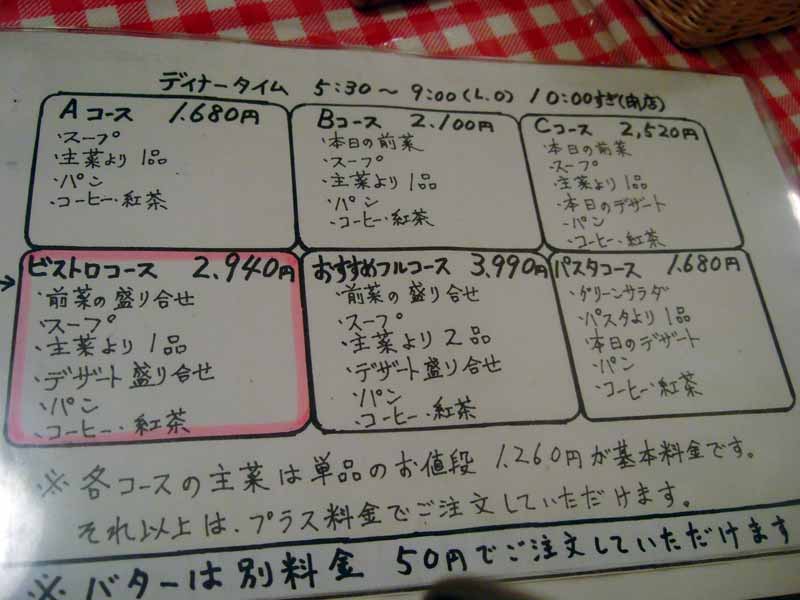 ディナータイム 5:30〜9:00(L.O) 10:00すぎ(閉店)
Aコース 1.680円
・スープ
・主菜より1品
・パン
・コーヒー・紅茶
Bコース 2.100円
・本日の前菜
・スープ
・主菜より1品
・パン
・コーヒー・紅茶
Cコース 2,520円
・本日の前菜
・スープ
・主菜より1品
・本日のデザート
・パン
・コーヒー・紅茶
ビストロコース 2.940円
・前菜の盛り合せ
・スープ
・主菜より1品
・デザート盛り合せ
・パン
・コーヒー・紅茶
おすすめフルコース 3.990円
・前菜の盛り合せ
・スープ
・主菜より2品
・デザート盛り合せ
・パン
・コーヒー・紅茶
パスタコース 1.680円
・グリーンサラダ
・パスタより1品
・本日のデザート
・パン
・コーヒー・紅茶
※各コースの主菜は単品のお値段 1.260円が基本料金です。
それ以上は、プラス料金でご注文していただけます。
※バターは別料金 50円でご注文していただけます